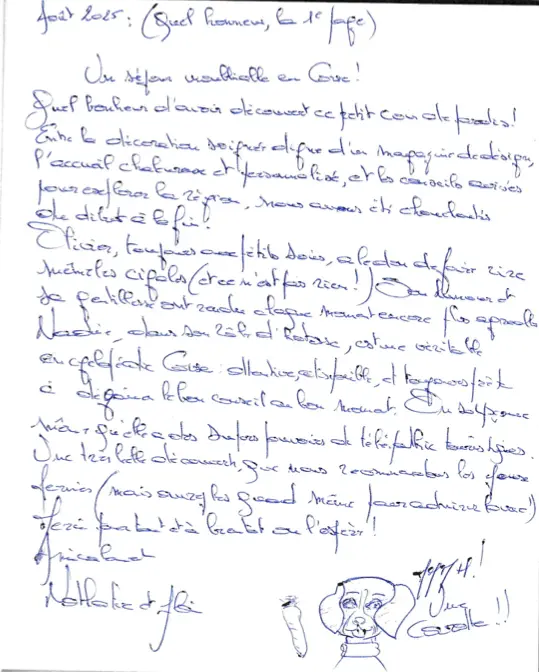 Août 2025 : (Quel honneur, la 1e page)
Un séjour inoubliable en Corse !
Quel bonheur d'avoir découvert ce petit coin de paradis !
Entre la décoration soignée digne d'un magazine de design,
l'accueil chaleureux et personnalisé, et les conseils avisés
pour explorer la région, nous avons été chouchoutés
du début à la fin !
Olivier, toujours aux petits soins, a le don de faire rire
même les cigales (et ce n'est pas rien !) Son humour et
sa gentillesse ont rendu chaque moment encore plus agréable
Nadia, dans son rôle d'hôtesse, est une véritable
encyclopédie Corse : attentive, disponible, et toujours prête
à dégainer le bon conseil au bon moment. On soupçonne
même qu'elle a des supers pouvoirs de télépathie touristiques.
Une très belle découverte, que nous recommandons les yeux
fermés (mais ouvrez les quand même pour admirer la vue !)
Merci pour tout et à bientôt on l'espère !
Amicalement
Nathalie et
Une
Carotte !!